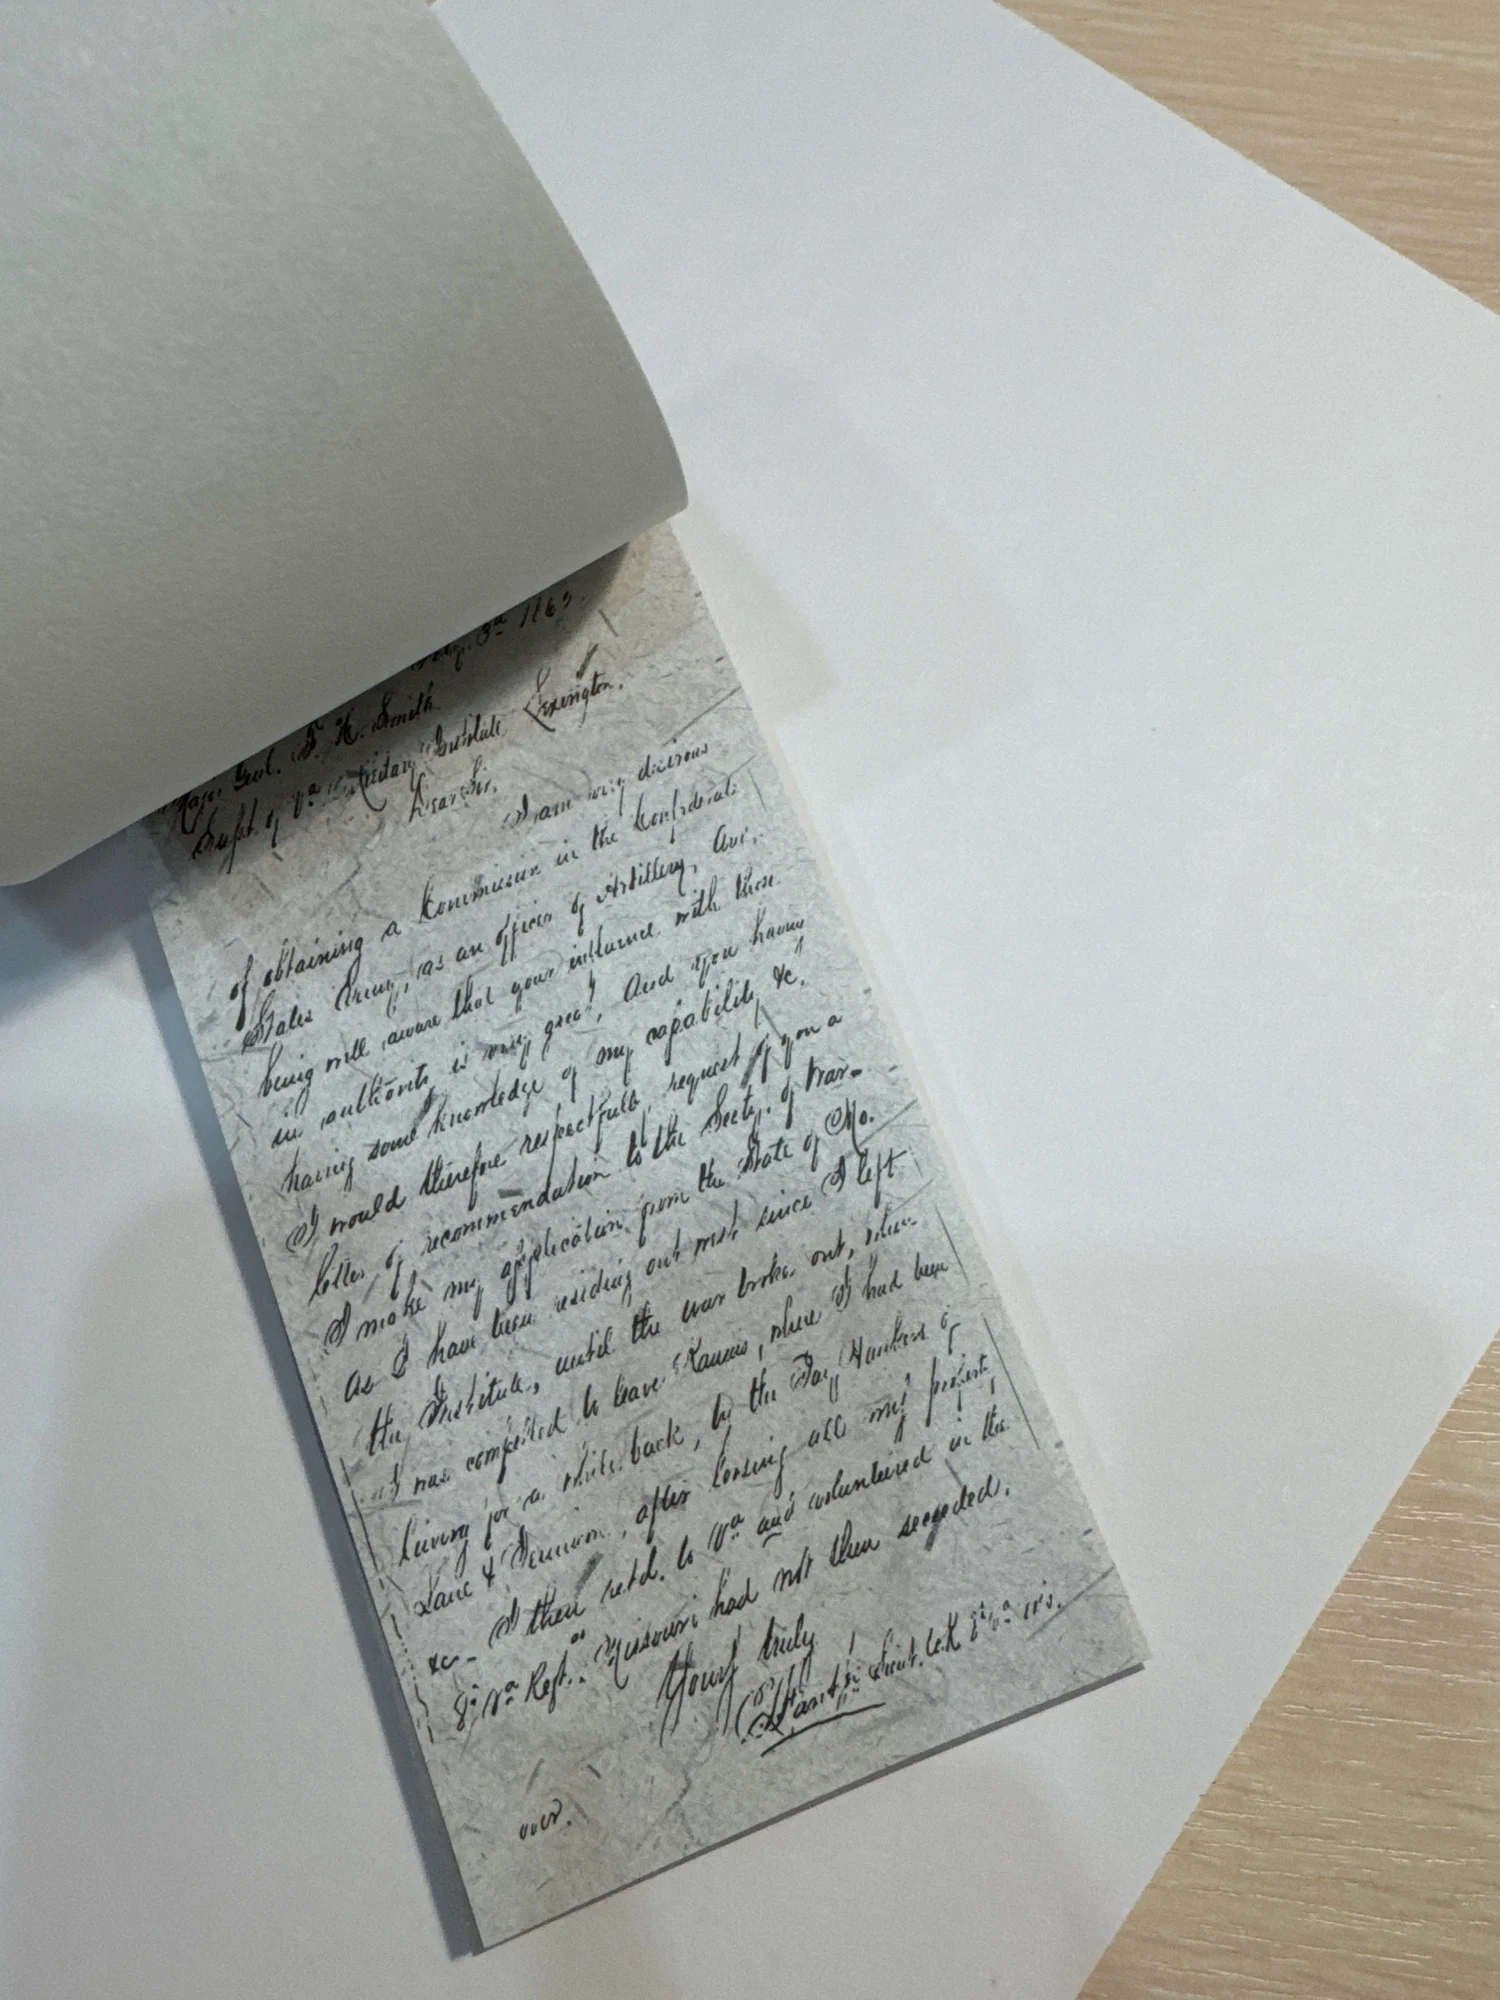 3d 1863.
Major Genl. F. H. Smith
Supt. of Va Military Institute Lexington.
Dear Sir,
I am very desirous
of obtaining a Commission in the Confederate
States Army, as an officer of Artillery, And,
being well aware that your influence with those
in authority is very great, And you having
having some knowledge of my capability &c.
I would therefore respectfully request of you a
letter of recommendation to the Secty. of War-
I make my application from the State of Mo.
As I have been residing out west since I left
the Institute, until the war broke out, when
I was compelled to leave Kansas, where I had been
living for a while back, by the Jay Hawkers of
Lane & Dennison, after loosing all my
&c- I then retd. to Va and volunteered in the
8th Va Regt. as Missouri had not then seceeded.
Yours truly
Lieut. Co. K 8th Va
over.